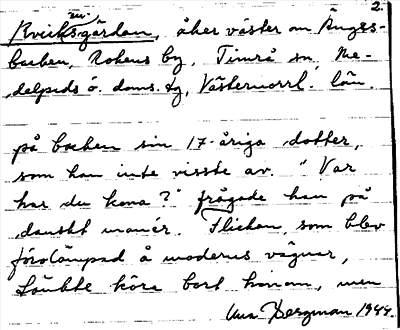 2.
Kvick^en^sgårdan, åker väster om Ängesbacken, Rokens by, Timrå sn, Medelpads ö. doms. tg, Västernorrl. län.
på backen sin 17-åriga dotter,
som han inte visste av. "Var
har du kona?" frågade han på
danskt manér. Flickan, som blev
förolämpad å moderns vägnar,
tänkte köra bort honom, men
Bergman 1944.